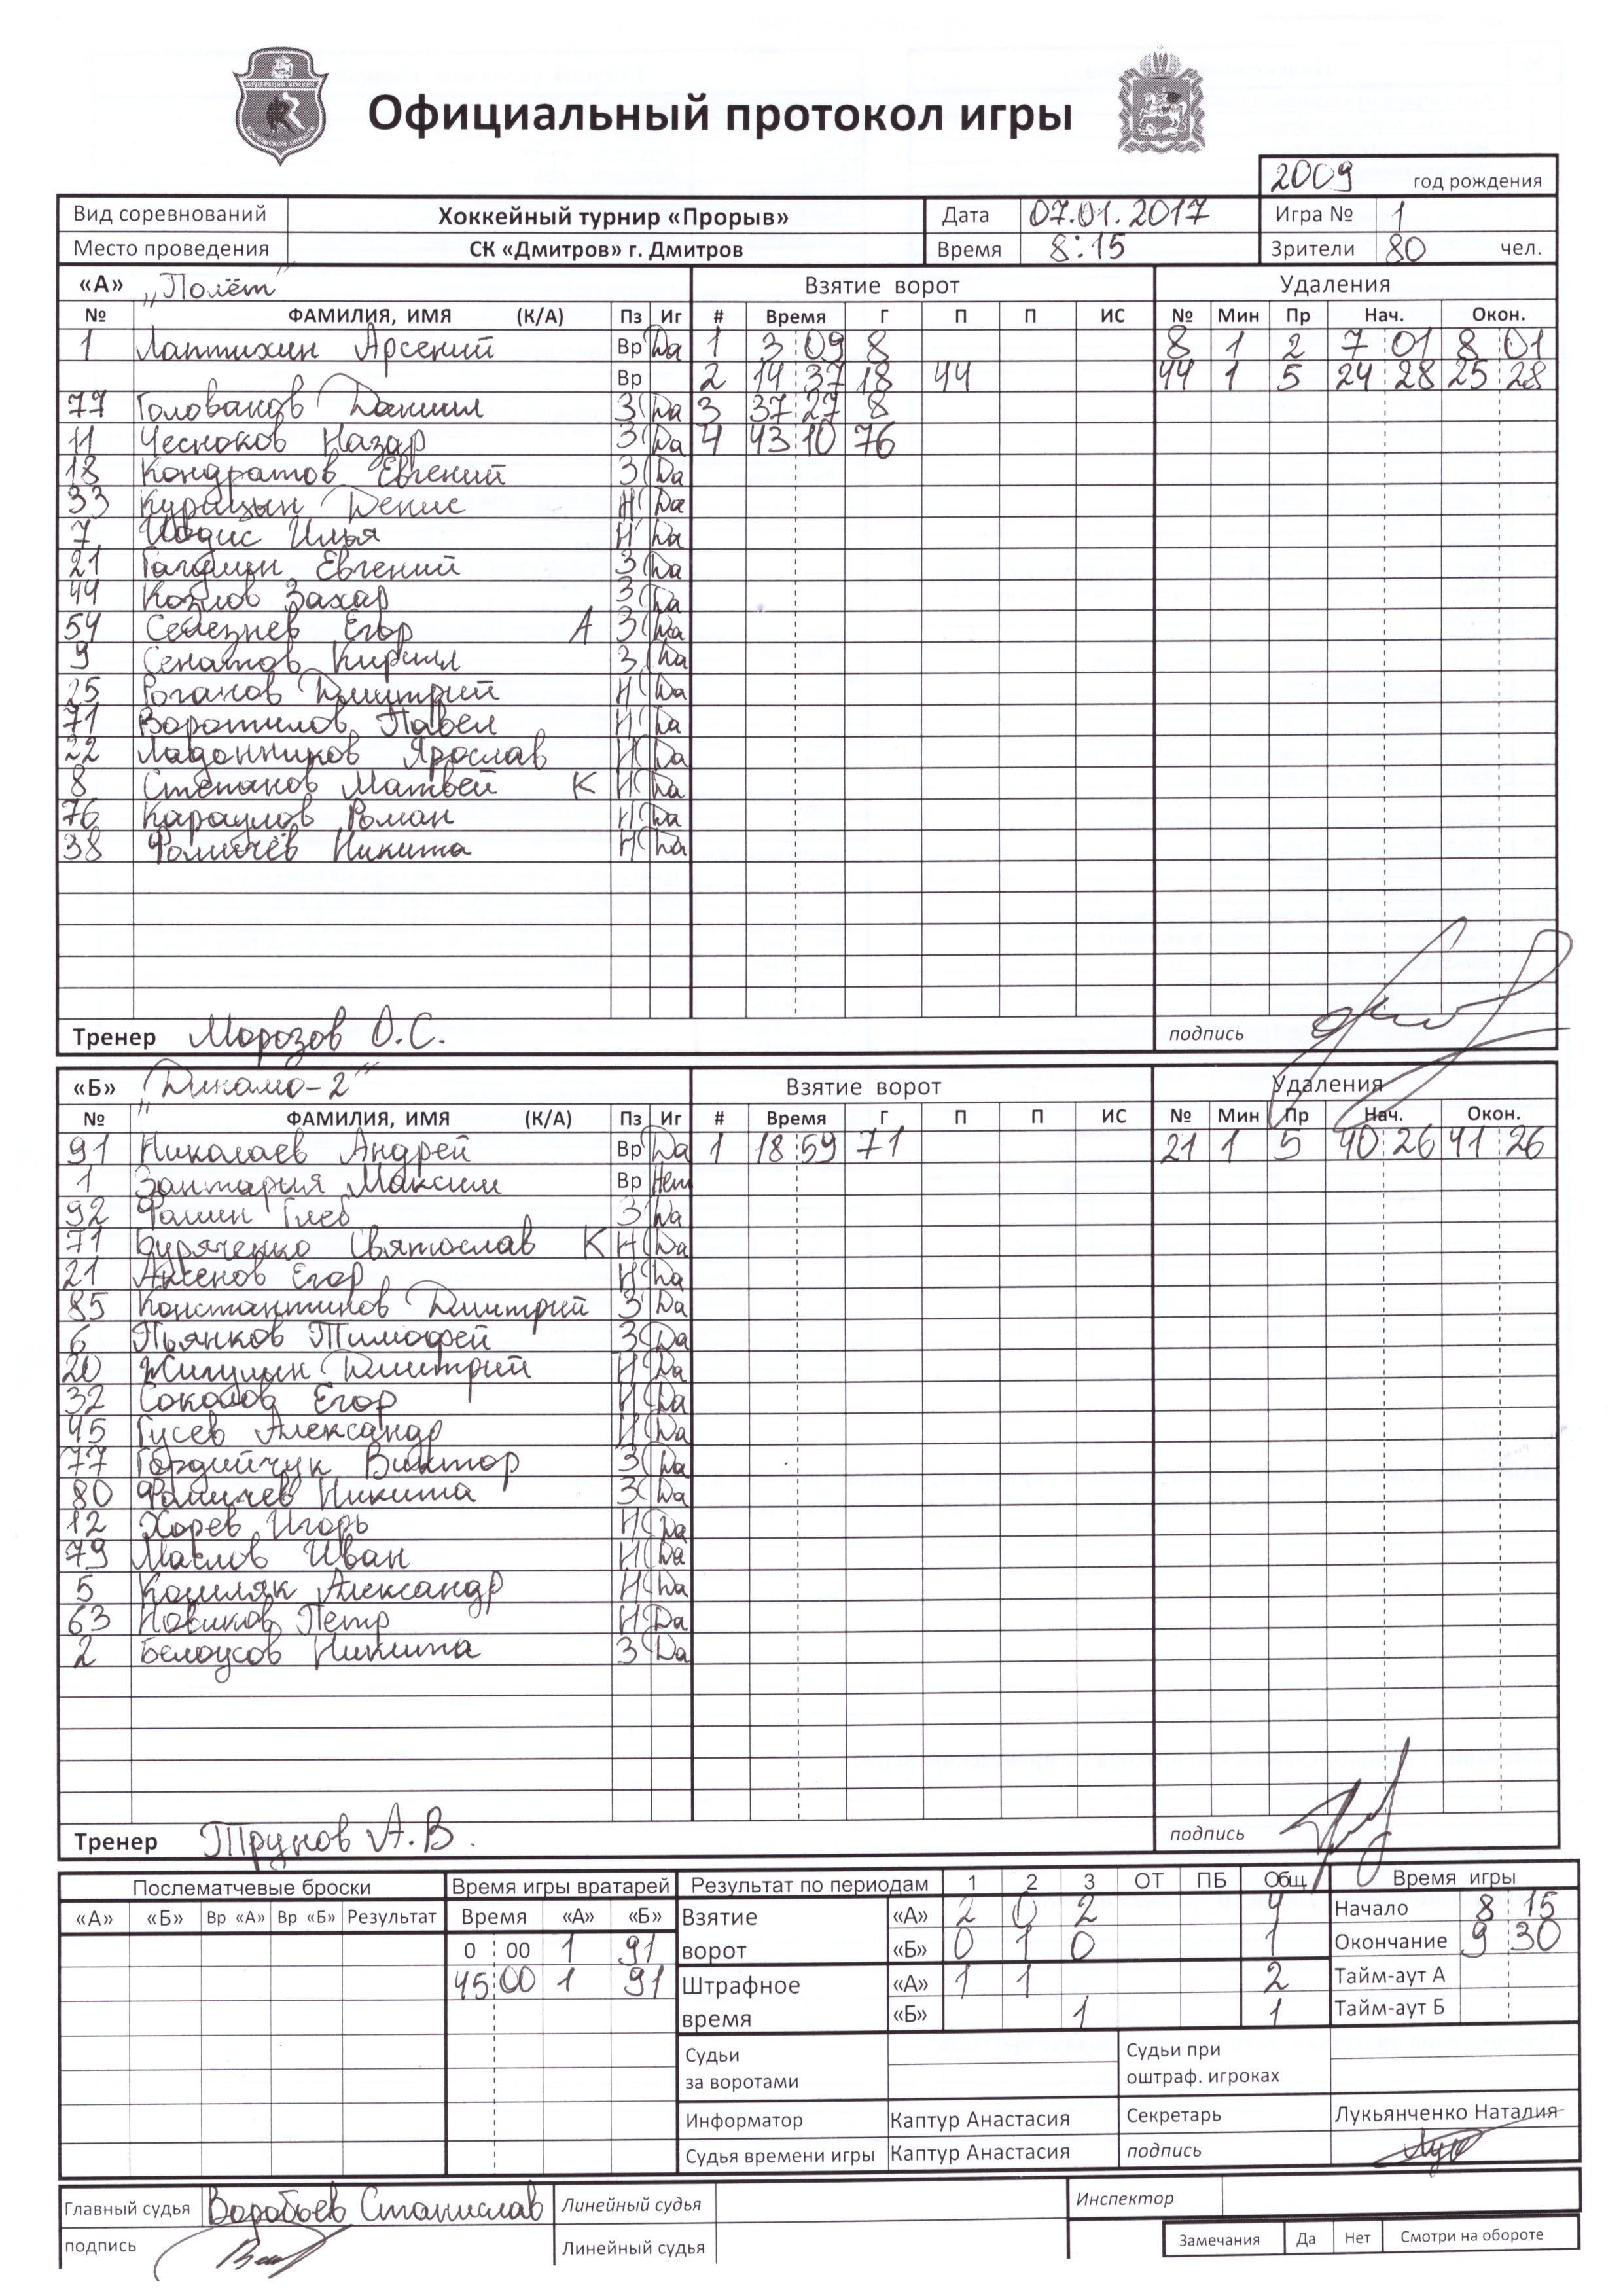 Официальный протокол игры
2009 год рождения
Вид соревнований Хоккейный турнир «Прорыв» Дата 07.01.2017 Игра № 1
Место проведения СК «Дмитров» г. Дмитров Время 8:15 Зрители 80 чел.
«А» „Полёт“ Взятие ворот Удаления
№ ФАМИЛИЯ, ИМЯ (К/А) Пз Иг # Время Г П П ИС № Мин Пр Нач. Окон.
1 Лаптихин Арсений Вр Да 1 3 09 8 8 1 2 7 01 8 01
Вр 2 14 37 18 44 44 1 5 24 28 25 28
77 Голованов Даниил З Да 3 37 27 8
11 Чесноков Назар З Да 4 43 10 76
18 Кондратов Евгений З Да
33 Курицын Денис Н Да
7 Илья Н Да
21 Евгений З Да
44 Козлов Захар З Да
54 Селезнев Егор А З Да
9 Сенатов Кирилл З Да
25 Роганов Дмитрий Н Да
71 Воротилов Павел Н Да
22 Ладонников Ярослав Н Да
8 Степанов Матвей К Н Да
76 Караулов Роман Н Да
38 Фомичёв Никита Н Да
Тренер Морозов О.С. подпись
«Б» „Динамо-2“ Взятие ворот Удаления
№ ФАМИЛИЯ, ИМЯ (К/А) Пз Иг # Время Г П П ИС № Мин Пр Нач. Окон.
91 Николаев Андрей Вр Да 1 18 59 71 21 1 5 40 26 41 26
1 Зантария Максим Вр Нет
92 Фомин Глеб З Да
71 Буряченко Святослав К Н Да
21 Аксенов Егор Н Да
85 Константинов Дмитрий З Да
6 Пьянков Тимофей З Да
20 Жигулин Дмитрий Н Да
32 Соколов Егор Н Да
45 Гусев Александр Н Да
77 Гордийчук Виктор З Да
80 Фомичев Никита З Да
12 Хорев Игорь Н Да
79 Маслов Иван Н Да
5 Кошляк Александр Н Да
63 Новиков Петр Н Да
2 Белоусов Никита З Да
Тренер Трунов А.В. подпись
Послематчевые броски Время игры вратарей Результат по периодам 1 2 3 ОТ ПБ Общ. Время игры
«А» «Б» Вр «А» Вр «Б» Результат Время «А» «Б» Взятие ворот «А» 2 0 2 4 Начало 8 15
0 00 1 91 «Б» 0 1 0 1 Окончание 9 30
45 00 1 91 Штрафное время «А» 1 1 2 Тайм-аут А
«Б» 1 1 Тайм-аут Б
Судьи за воротами Судьи при оштраф. игроках
Информатор Каптур Анастасия Секретарь Лукьянченко Наталия
Судья времени игры Каптур Анастасия подпись
Главный судья Воробьев Станислав Линейный судья Инспектор
подпись Линейный судья Замечания Да Нет Смотри на обороте